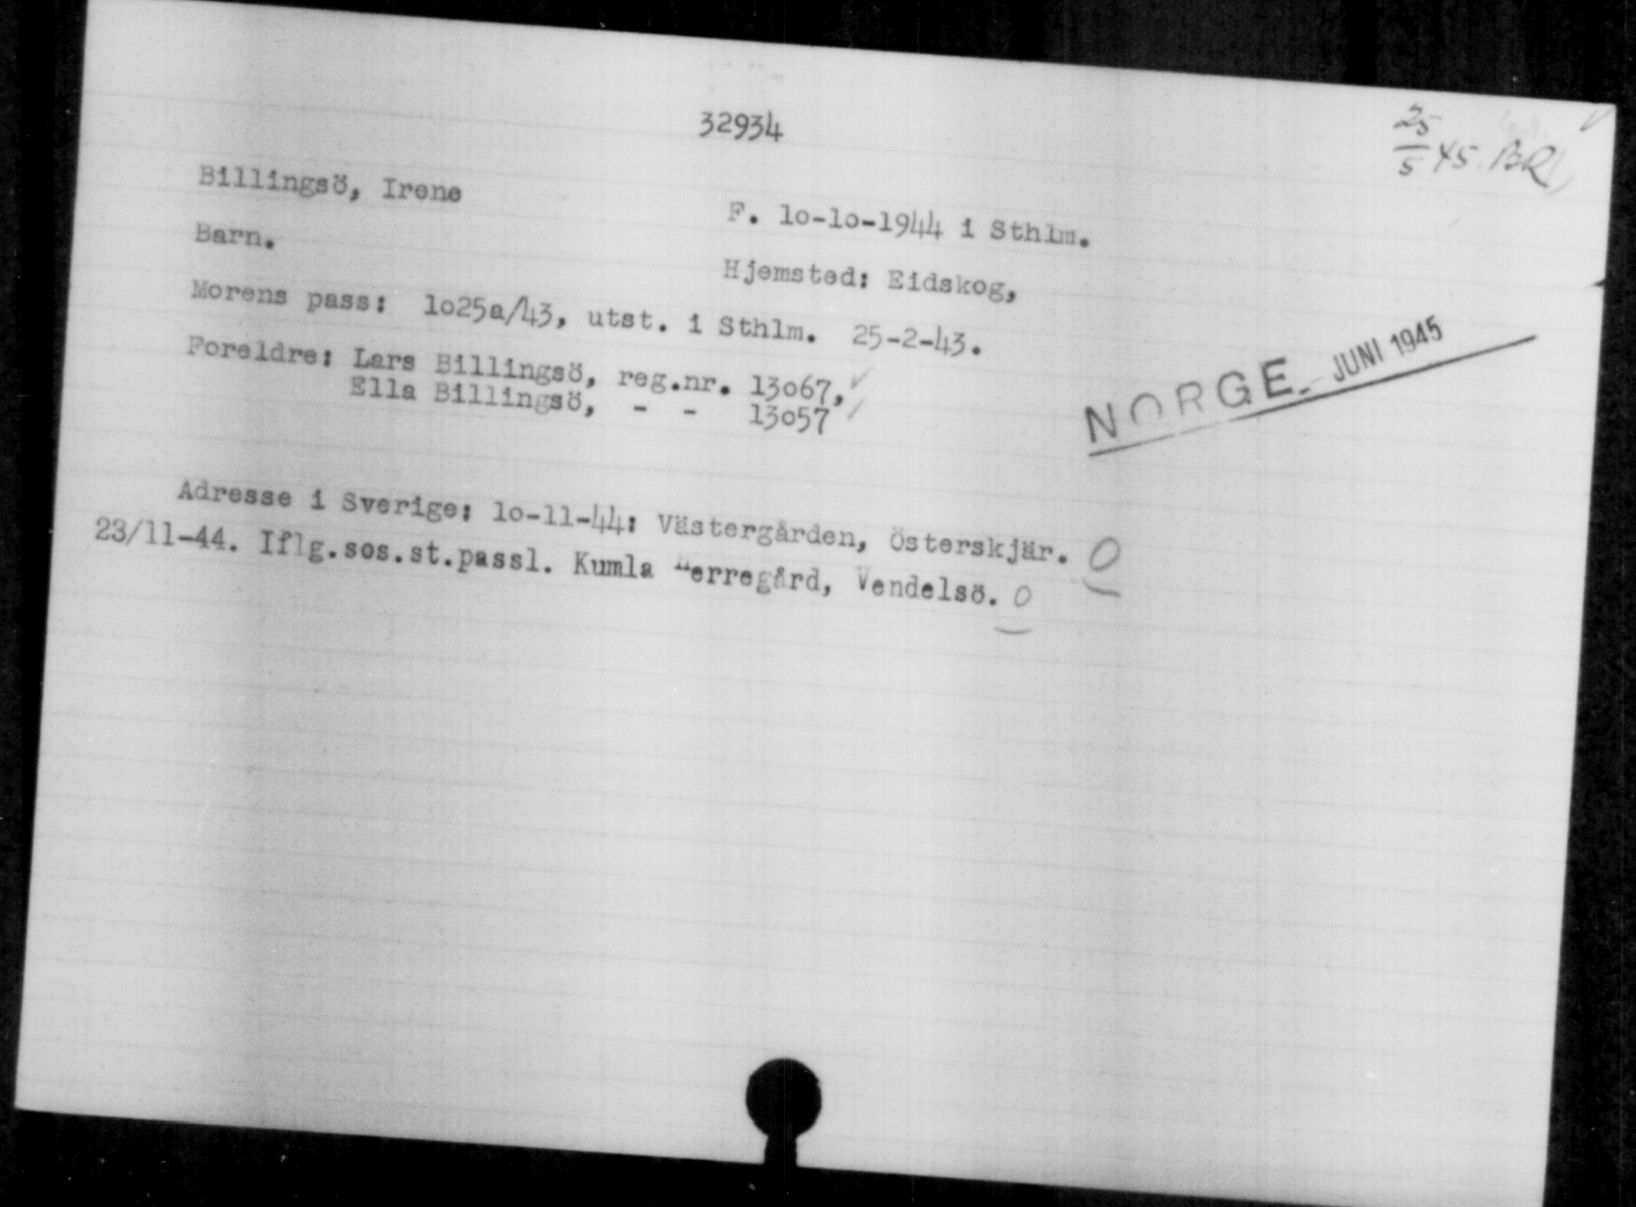 32934
25/5 45. BR
Billingsö, Irene
F. 1o-1o-1944 i Sthlm.
Barn.
Hjemsted: Eidskog,
Morens pass: 1o25a/43, utst. i Sthlm. 25-2-43.
Foreldre: Lars Billingsö, reg.nr. 13o67,
Ella Billingsö, - - 13o57
NORGE - JUNI 1945
Adresse i Sverige: 1o-11-44: Västergården, Österskjär. O
23/11-44. Iflg.sos.st.passl. Kumla Herregård, Vendelsö. O